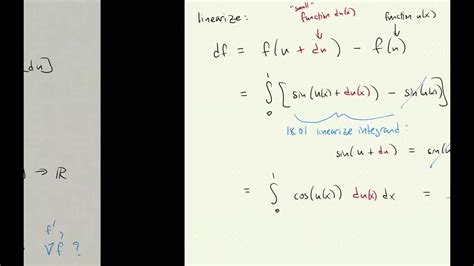 du]
→ ℝ
f' ?
∇f ?
linearize:
"small"
function du(x)
function u(x)
df = f(u + du) − f(u)
= ∫₀¹ [sin(u(x) + du(x)) − sin(u(x))]
18.01 linearize integrand:
sin(u + du) = sin(u
= ∫₀¹ cos(u(x)) du(x) dx =